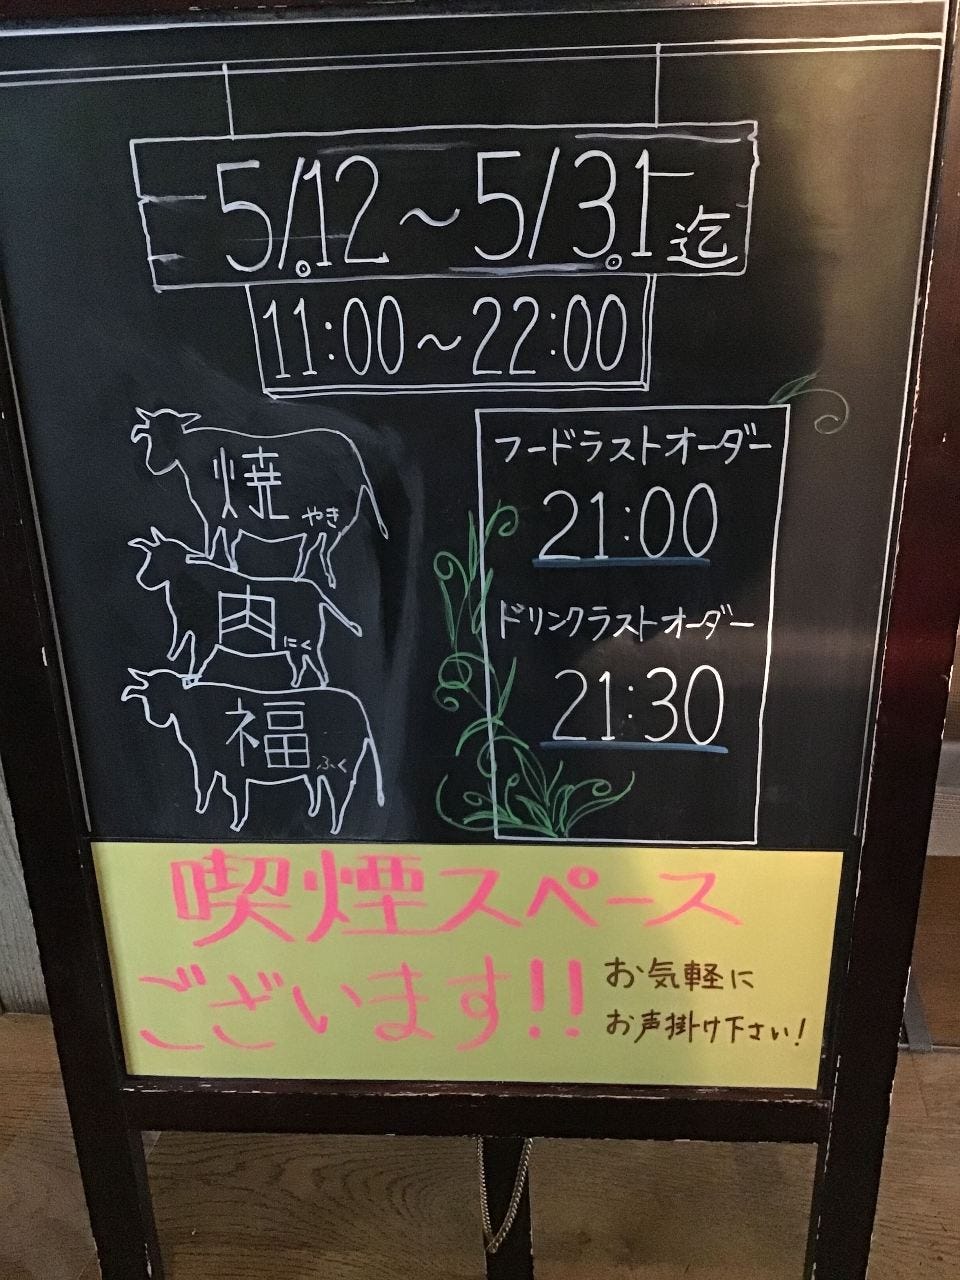 5/12～5/31迄
11:00～22:00
焼 やき
肉 にく
福 ふく
フードラストオーダー
21:00
ドリンクラストオーダー
21:30
喫煙スペース
ございます!!
お気軽に
お声掛け下さい!